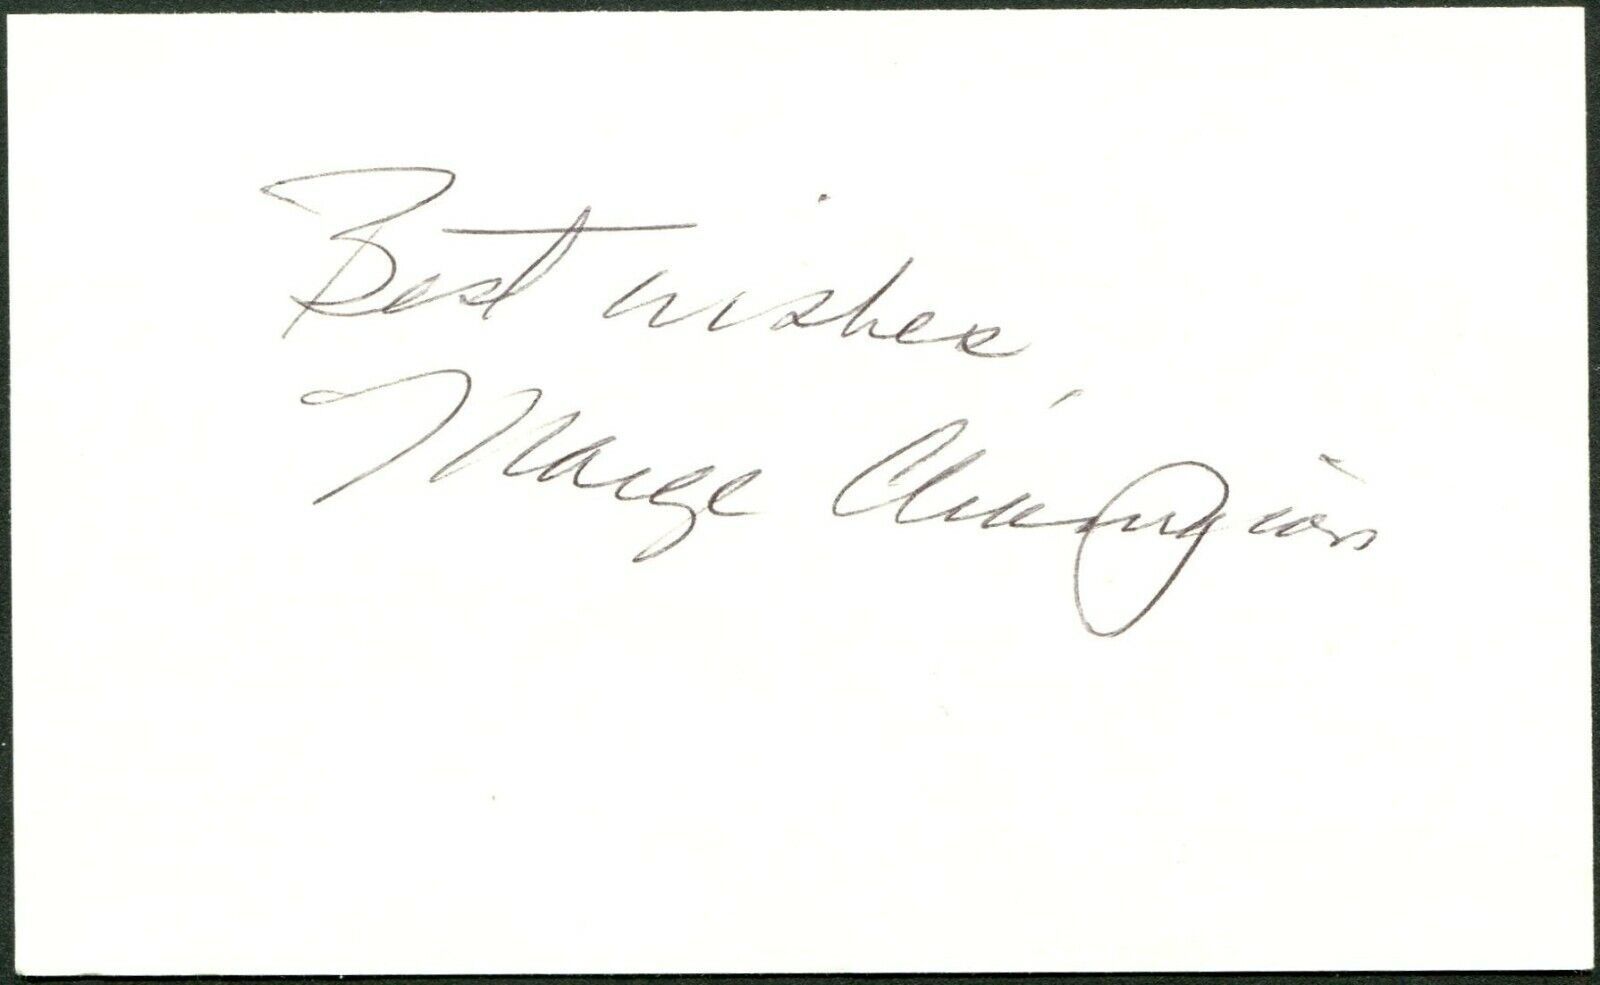 Best wishes,
Marge Champion